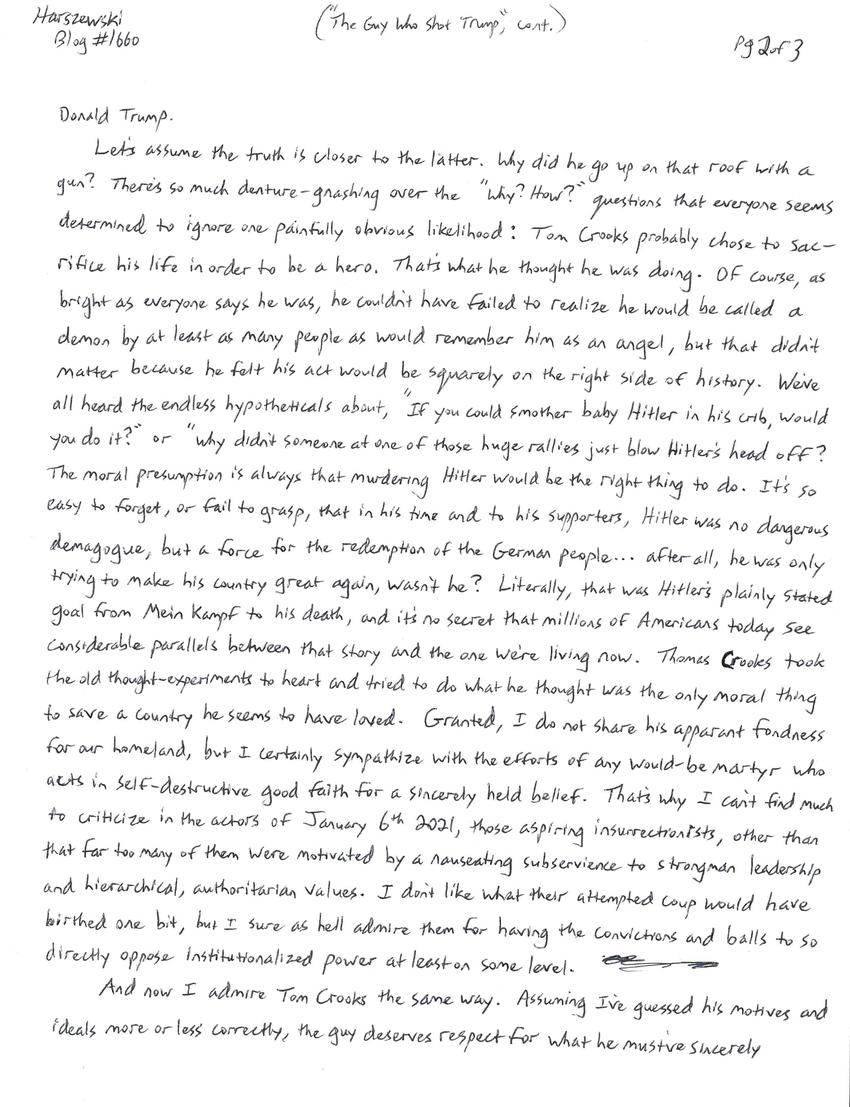 Harszewski
Blog #1660
("The Guy Who Shot Trump," cont.)
Pg 2 of 3
Donald Trump.
Let's assume the truth is closer to the latter. Why did he go up on that roof with a
gun? There's so much denture-gnashing over the "Why? How?" questions that everyone seems
determined to ignore one painfully obvious likelihood: Tom Crooks probably chose to sac-
rifice his life in order to be a hero. That's what he thought he was doing. Of course, as
bright as everyone says he was, he couldn't have failed to realize he would be called a
demon by at least as many people as would remember him as an angel, but that didn't
matter because he felt his act would be squarely on the right side of history. We've
all heard the endless hypotheticals about, "If you could smother baby Hitler in his crib, would
you do it?" or "why didn't someone at one of those huge rallies just blow Hitler's head off?
The moral presumption is always that murdering Hitler would be the right thing to do. It's so
easy to forget, or fail to grasp, that in his time and to his supporters, Hitler was no dangerous
demagogue, but a force for the redemption of the German people... after all, he was only
trying to make his country great again, wasn't he? Literally, that was Hitler's plainly stated
goal from Mein Kampf to his death, and it's no secret that millions of Americans today see
considerable parallels between that story and the one we're living now. Thomas Crooks took
the old thought-experiments to heart and tried to do what he thought was the only moral thing
to save a country he seems to have loved. Granted, I do not share his apparant fondness
for our homeland, but I certainly sympathize with the efforts of any would-be martyr who
acts in self-destructive good faith for a sincerely held belief. That's why I can't find much
to criticize in the actors of January 6th 2021, those aspiring insurrectionists, other than
that far too many of them were motivated by a nauseating subservience to strongman leadership
and hierarchical, authoritarian values. I don't like what their attempted coup would have
birthed one bit, but I sure as hell admire them for having the convictions and balls to so
directly oppose institutionalized power at least on some level.
And now I admire Tom Crooks the same way. Assuming I've guessed his motives and
ideals more or less correctly, the guy deserves respect for what he must've sincerely